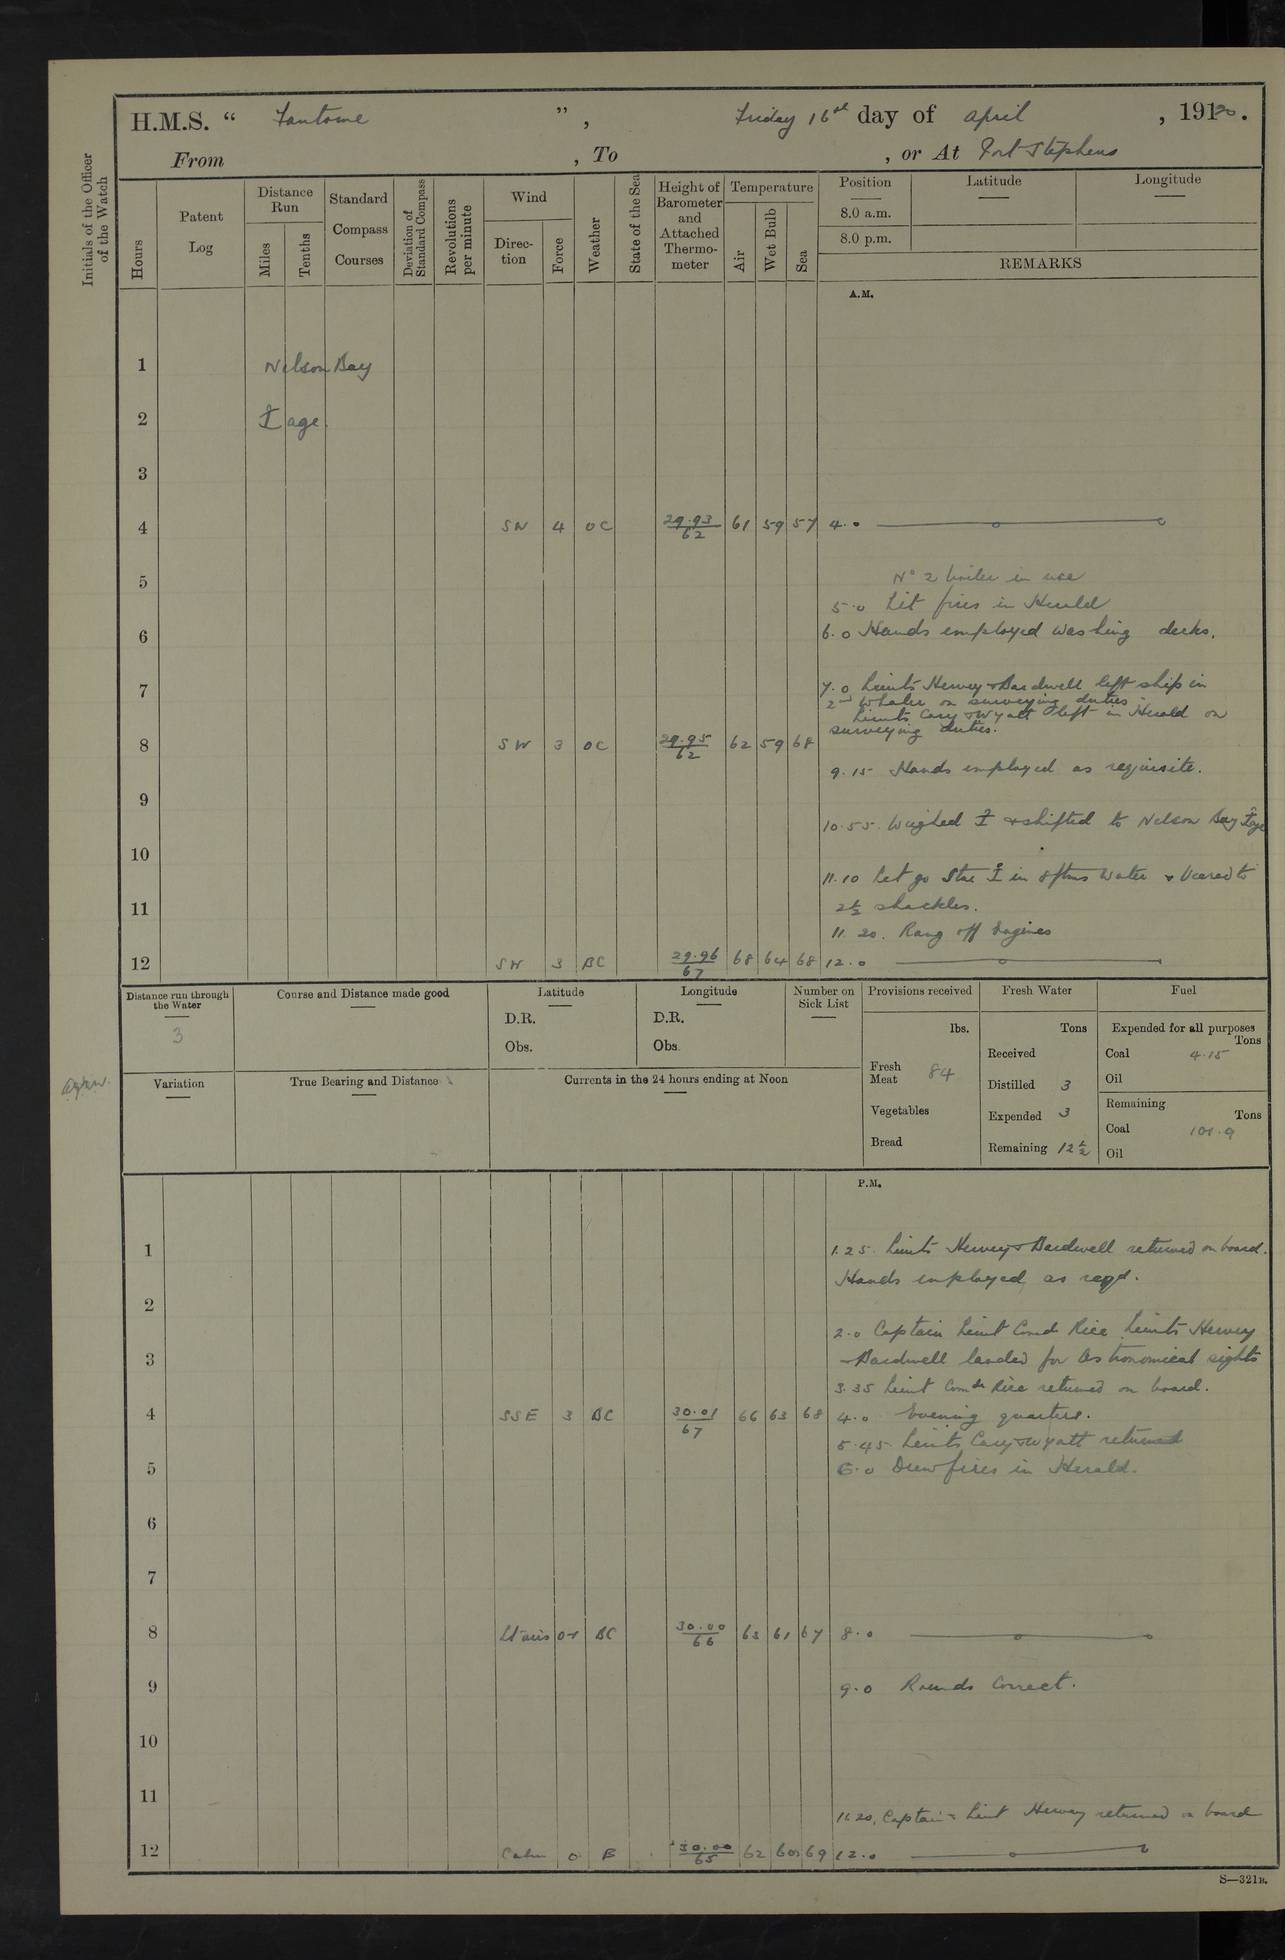 H.M.S. “ Fantome ”, Friday 16th day of April, 1920.
From , To , or At Port Stephens
Initials of the Officer of the Watch
Hours
Patent Log
Distance Run
Miles
Tenths
Standard Compass Courses
Deviation of Standard Compass
Revolutions per minute
Wind
Direc-tion
Force
Weather
State of the Sea
Height of Barometer and Attached Thermo-meter
Temperature
Air
Wet Bulb
Sea
Position
Latitude
Longitude
8.0 a.m.
8.0 p.m.
REMARKS
A.M.
1 Nelson Bay
2 ⚓ age
3
4 SW 4 OC 29.93/62 61 59 57 4.0
No 2 boiler in use
5
5.0 Lit fires in Herald
6 6.0 Hands employed washing decks.
7 7.0 Lieuts Hervey & Bardwell left ship in
2nd Whaler on surveying duties
Lieuts Cary & Wyatt left in Herald on
surveying duties.
8 SW 3 OC 29.95/62 62 59 68
9.15 Hands employed as requisite.
9
10.55. Weighed ⚓ & shifted to Nelson Bay ⚓age
10
11.10 Let go Star ⚓ in 8 fms water & Veered to
11 2½ shackles.
11.20. Rang off Engines
12 SW 3 BC 29.96/67 68 64 68 12.0
Distance run through the Water
3
Course and Distance made good
Latitude
D.R.
Obs.
Longitude
D.R.
Obs.
Number on Sick List
Provisions received
lbs.
Fresh Meat 84
Vegetables
Bread
Fresh Water
Tons
Received
Distilled 3
Expended 3
Remaining 12½
Fuel
Expended for all purposes
Tons
Coal 4.15
Oil
Remaining
Tons
Coal 101.9
Oil
Variation
True Bearing and Distance
Currents in the 24 hours ending at Noon
P.M.
1 1.25. Lieuts Hervey & Bardwell returned on board.
Hands employed as reqd.
2
2.0 Captain Lieut Comd Rice Lieuts Hervey
3 & Bardwell landed for Astronomical sights
3.35 Lieut Comdr Rice returned on board.
4 SSE 3 BC 30.01/67 66 63 68 4.0 Evening quarters.
5.45. Lieuts Cary & Wyatt returned
5 6.0 Drew fires in Herald.
6
7
8 Lt airs 0-1 BC 30.00/66 63 61 67 8.0
9 9.0 Rounds Correct.
10
11
11.20, Captain & Lieut Hervey returned on board
12 Calm 0 B 30.00/65 62 60 69 12.0
S—321B.